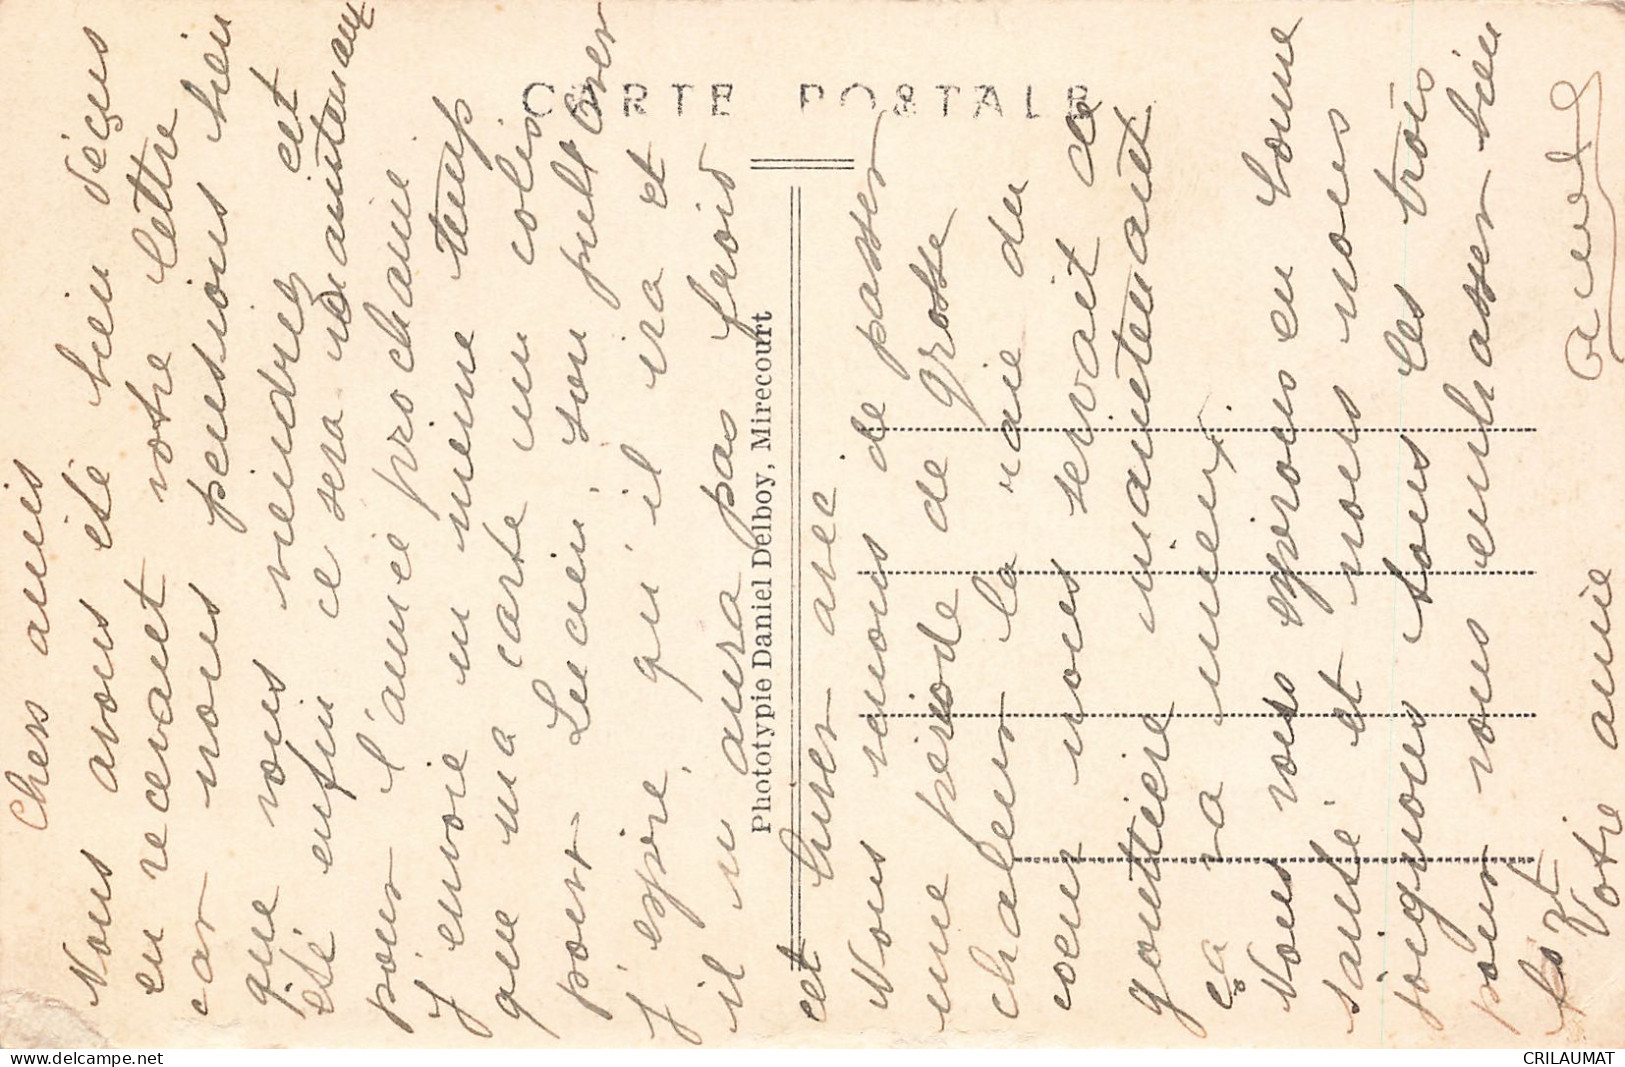 CARTE POSTALE
Phototypie Daniel Delboy, Mirecourt
Chers amis
Nous avons été bien déçus
en recevant votre lettre
car nous pensions bien
que vous viendriez cet
été enfin ce sera maintenant
pour l'année prochaine
J'envoie en même temp
que ma carte un colis
pour Lucien, son pull over
J'espère, qu'il ira et
il n'aura pas froid
cet hiver avec
Nous venons de passer
une période de grosse
chaleur la raie du
nous servait de
goutière maintenant
ça va mieux.
Nous vous espérons en bonne
santé et nous nous
joignons tous les trois
pour vous embrasser bien
fort
Votre amie
CRILAUMAT
delcampe.net